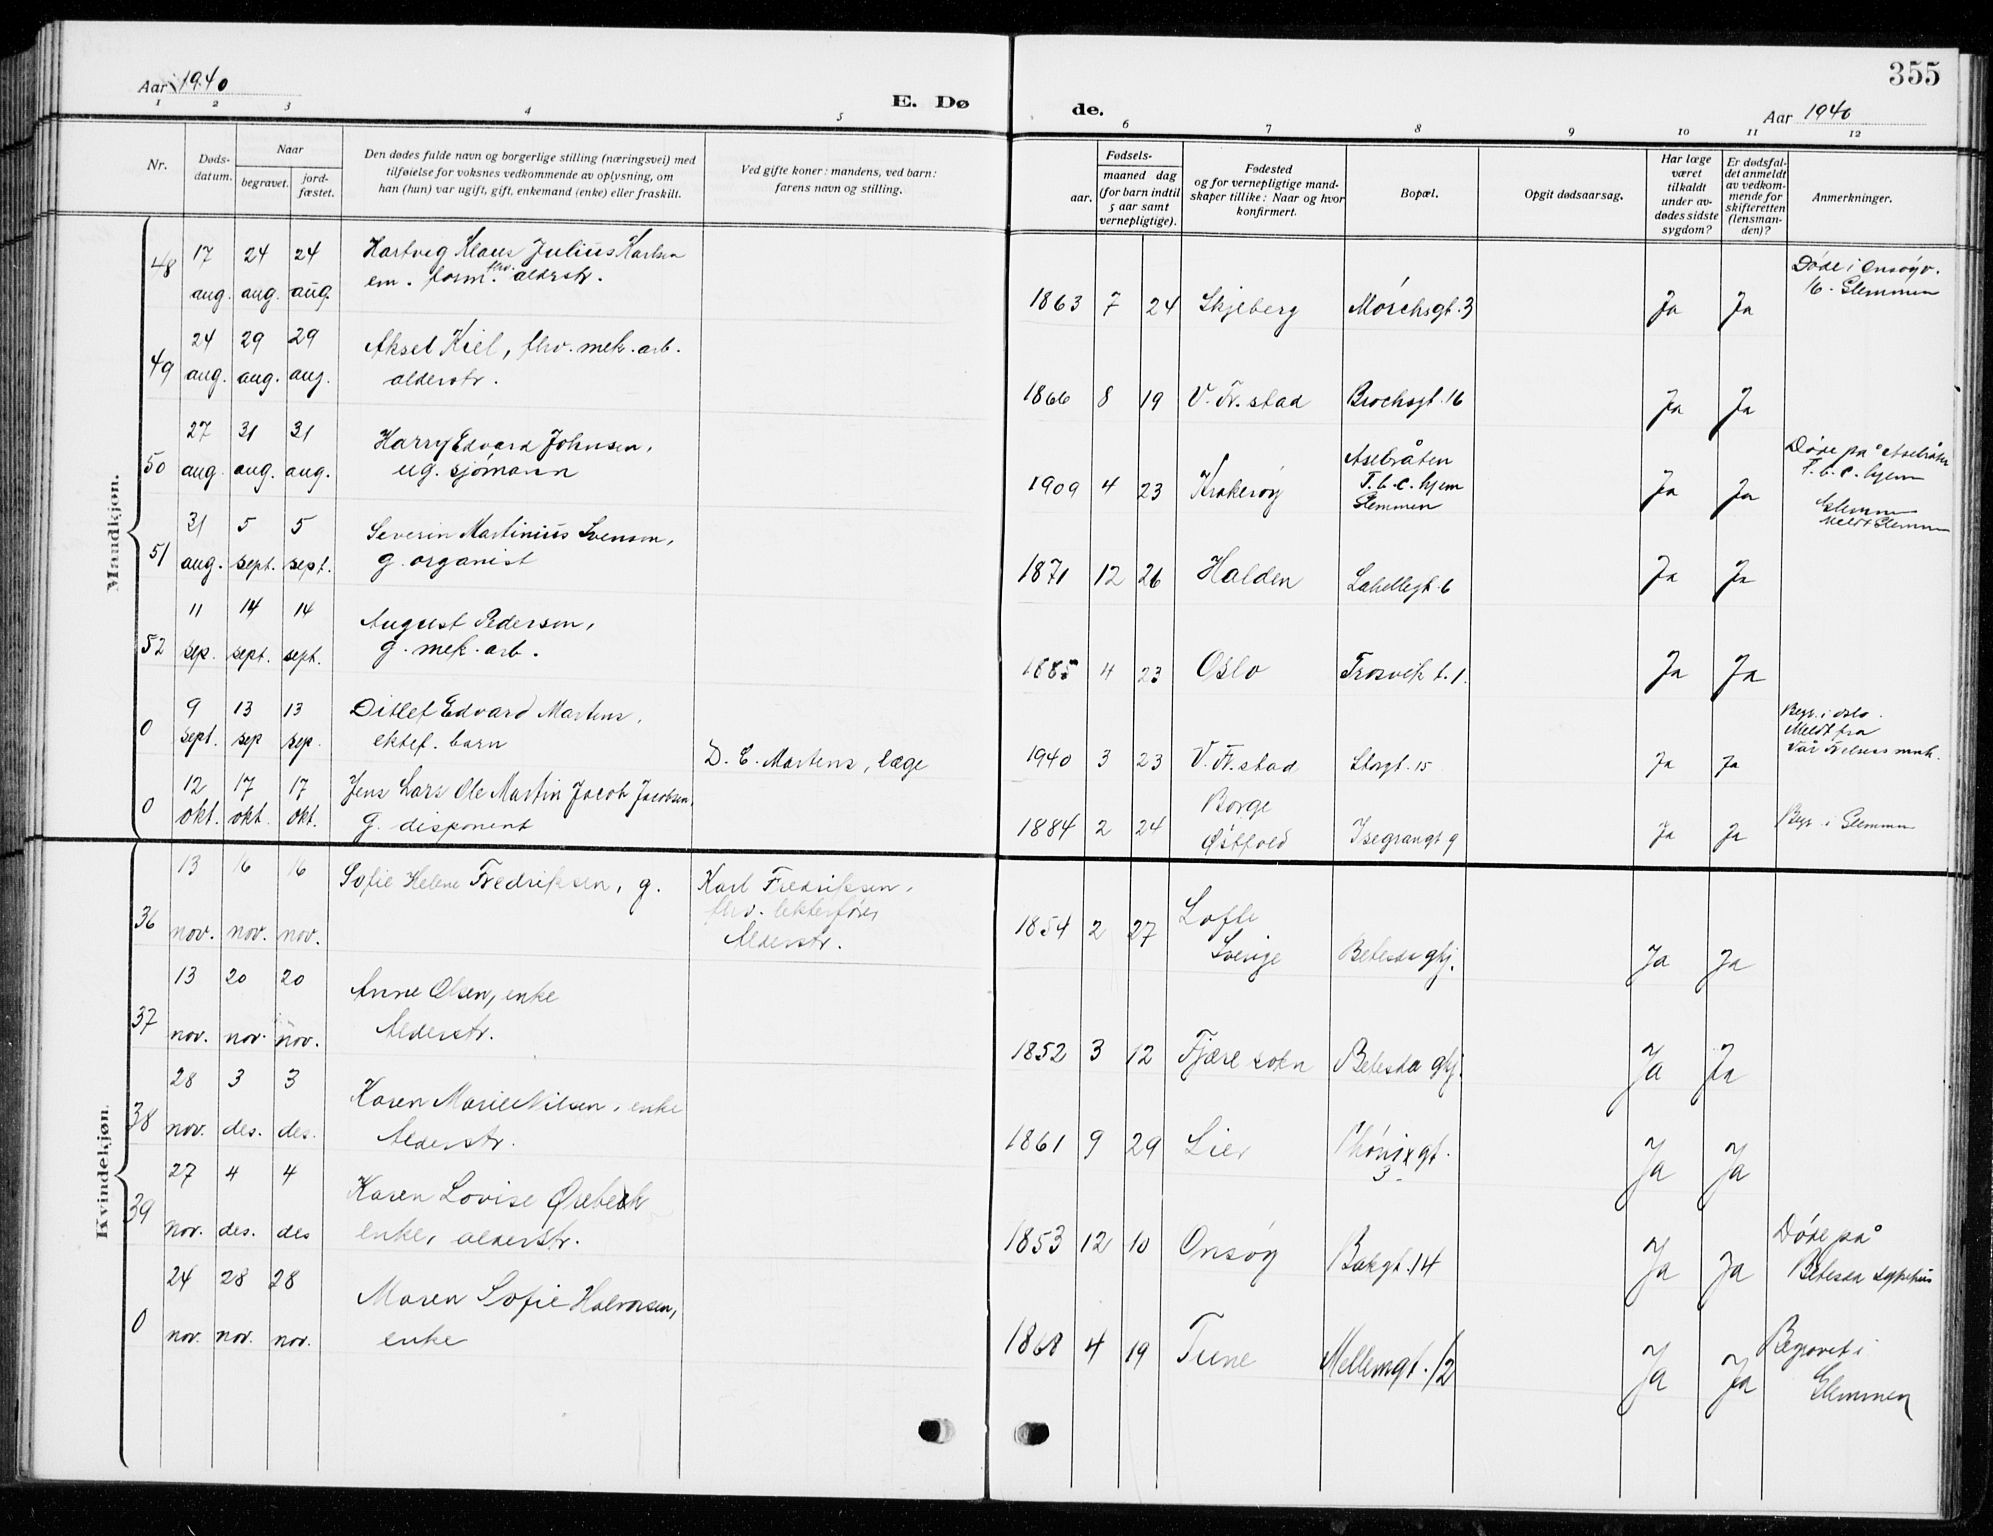 355
Aar 1940
E. Dø
de.
Aar 1940
1 2 3 4 5 6 7 8 9 10 11 12
Nr.
Døds-
datum.
Naar
begravet.
jord-
fæstet.
Den dødes fulde navn og borgerlige stilling (næringsvei) med
tilføielse for voksnes vedkommende av oplysning, om
han (hun) var ugift, gift, enkemand (enke) eller fraskilt.
Ved gifte koner: mandens, ved barn:
farens navn og stilling.
Fødsels-
aar.
maaned dag
(for barn indtil
5 aar samt
vernepligtige).
Fødested
og for vernepligtige mand-
skaper tillike: Naar og hvor
konfirmert.
Bopæl.
Opgit dødsaarsag.
Har læge
været
tilkaldt
under av-
dødes sidste
sygdom?
Er dødsfal-
det anmeldt
av vedkom-
mende for
skifteretten
(lensman-
den)?
Anmerkninger.
Mandkjøn.
48 17 24 24 Hartvig Klaus Julius Karlsen
aug. aug. aug. em. form. fhv. alderstr.
1863 7 24 Skjeberg Mörchsgt. 3 Ja Ja
Döde i Onsöy
Glemmen
49 24 29 29 Aksel Kiel, fhv. mek. arb.
aug. aug. aug. alderstr.
1866 8 19 V. Fr.stad Brochsgt. 16 Ja Ja
50 27 31 31 Harry Edvard Johnsen,
aug. aug. aug. ug. sjömann
1909 4 23 Krakeröy Aselbråten
T.b.c. hjem
Glemmen Ja Ja
Döde på Aselbråten
T.b.c. hjem
Glemmen
Meldt Glemmen
51 31 5 5 Severin Martinius Svensen,
aug. sept. sept. g. organist
1871 12 26 Halden Lahellegt. 6 Ja Ja
52 11 14 14 August Pedersen,
sep. sept. sept. g. mek. arb.
1885 4 23 Oslo Trosvik t. 1. Ja Ja
0 9 13 13 Ditlef Edvard Martens,
sept. sep sep. ektef. barn
D. E. Martens, læge
1940 3 23 V. Fr.stad Storgt. 15 Ja Ja
Begr. i Oslo.
Meldt fra
Vår Frelsers menh.
0 12 17 17 Jens Lars Ole Martin Jacob Jacobsen,
okt. okt. okt. g. disponent
1884 2 24 Borge
Østfold Isegrangt 9 Ja Ja
Begr. i Glemmen
Kvindekjøn.
36 13 16 16 Sofie Helene Fredriksen, g.
nov. nov. nov.
Karl Fredriksen,
fhv. lekterfører
Alderstr.
1854 2 27
Sverige Betesda ghj. Ja Ja
37 13 20 20 Anne Olsen, enke
nov. nov. nov. Alderstr.
1852 3 12 Fjære sokn Betesda ghj. Ja Ja
38 28 3 3 Karen Marie Nilsen, enke
nov. des. des. Alderstr.
1861 9 29 Lier Phönixgt.
3 Ja Ja
39 27 4 4 Karen Lovise Ørebeck
nov. des. des enke, alderstr.
1853 12 10 Onsöy Bakgt. 14 Ja Ja
Döde på
Betesda sykehus
0 24 28 28 Maren Sofie Halvorsen,
nov. nov. nov. enke
1868 4 19 Tune Mellemgt. 12 Ja Ja
Begravet i
Glemmen